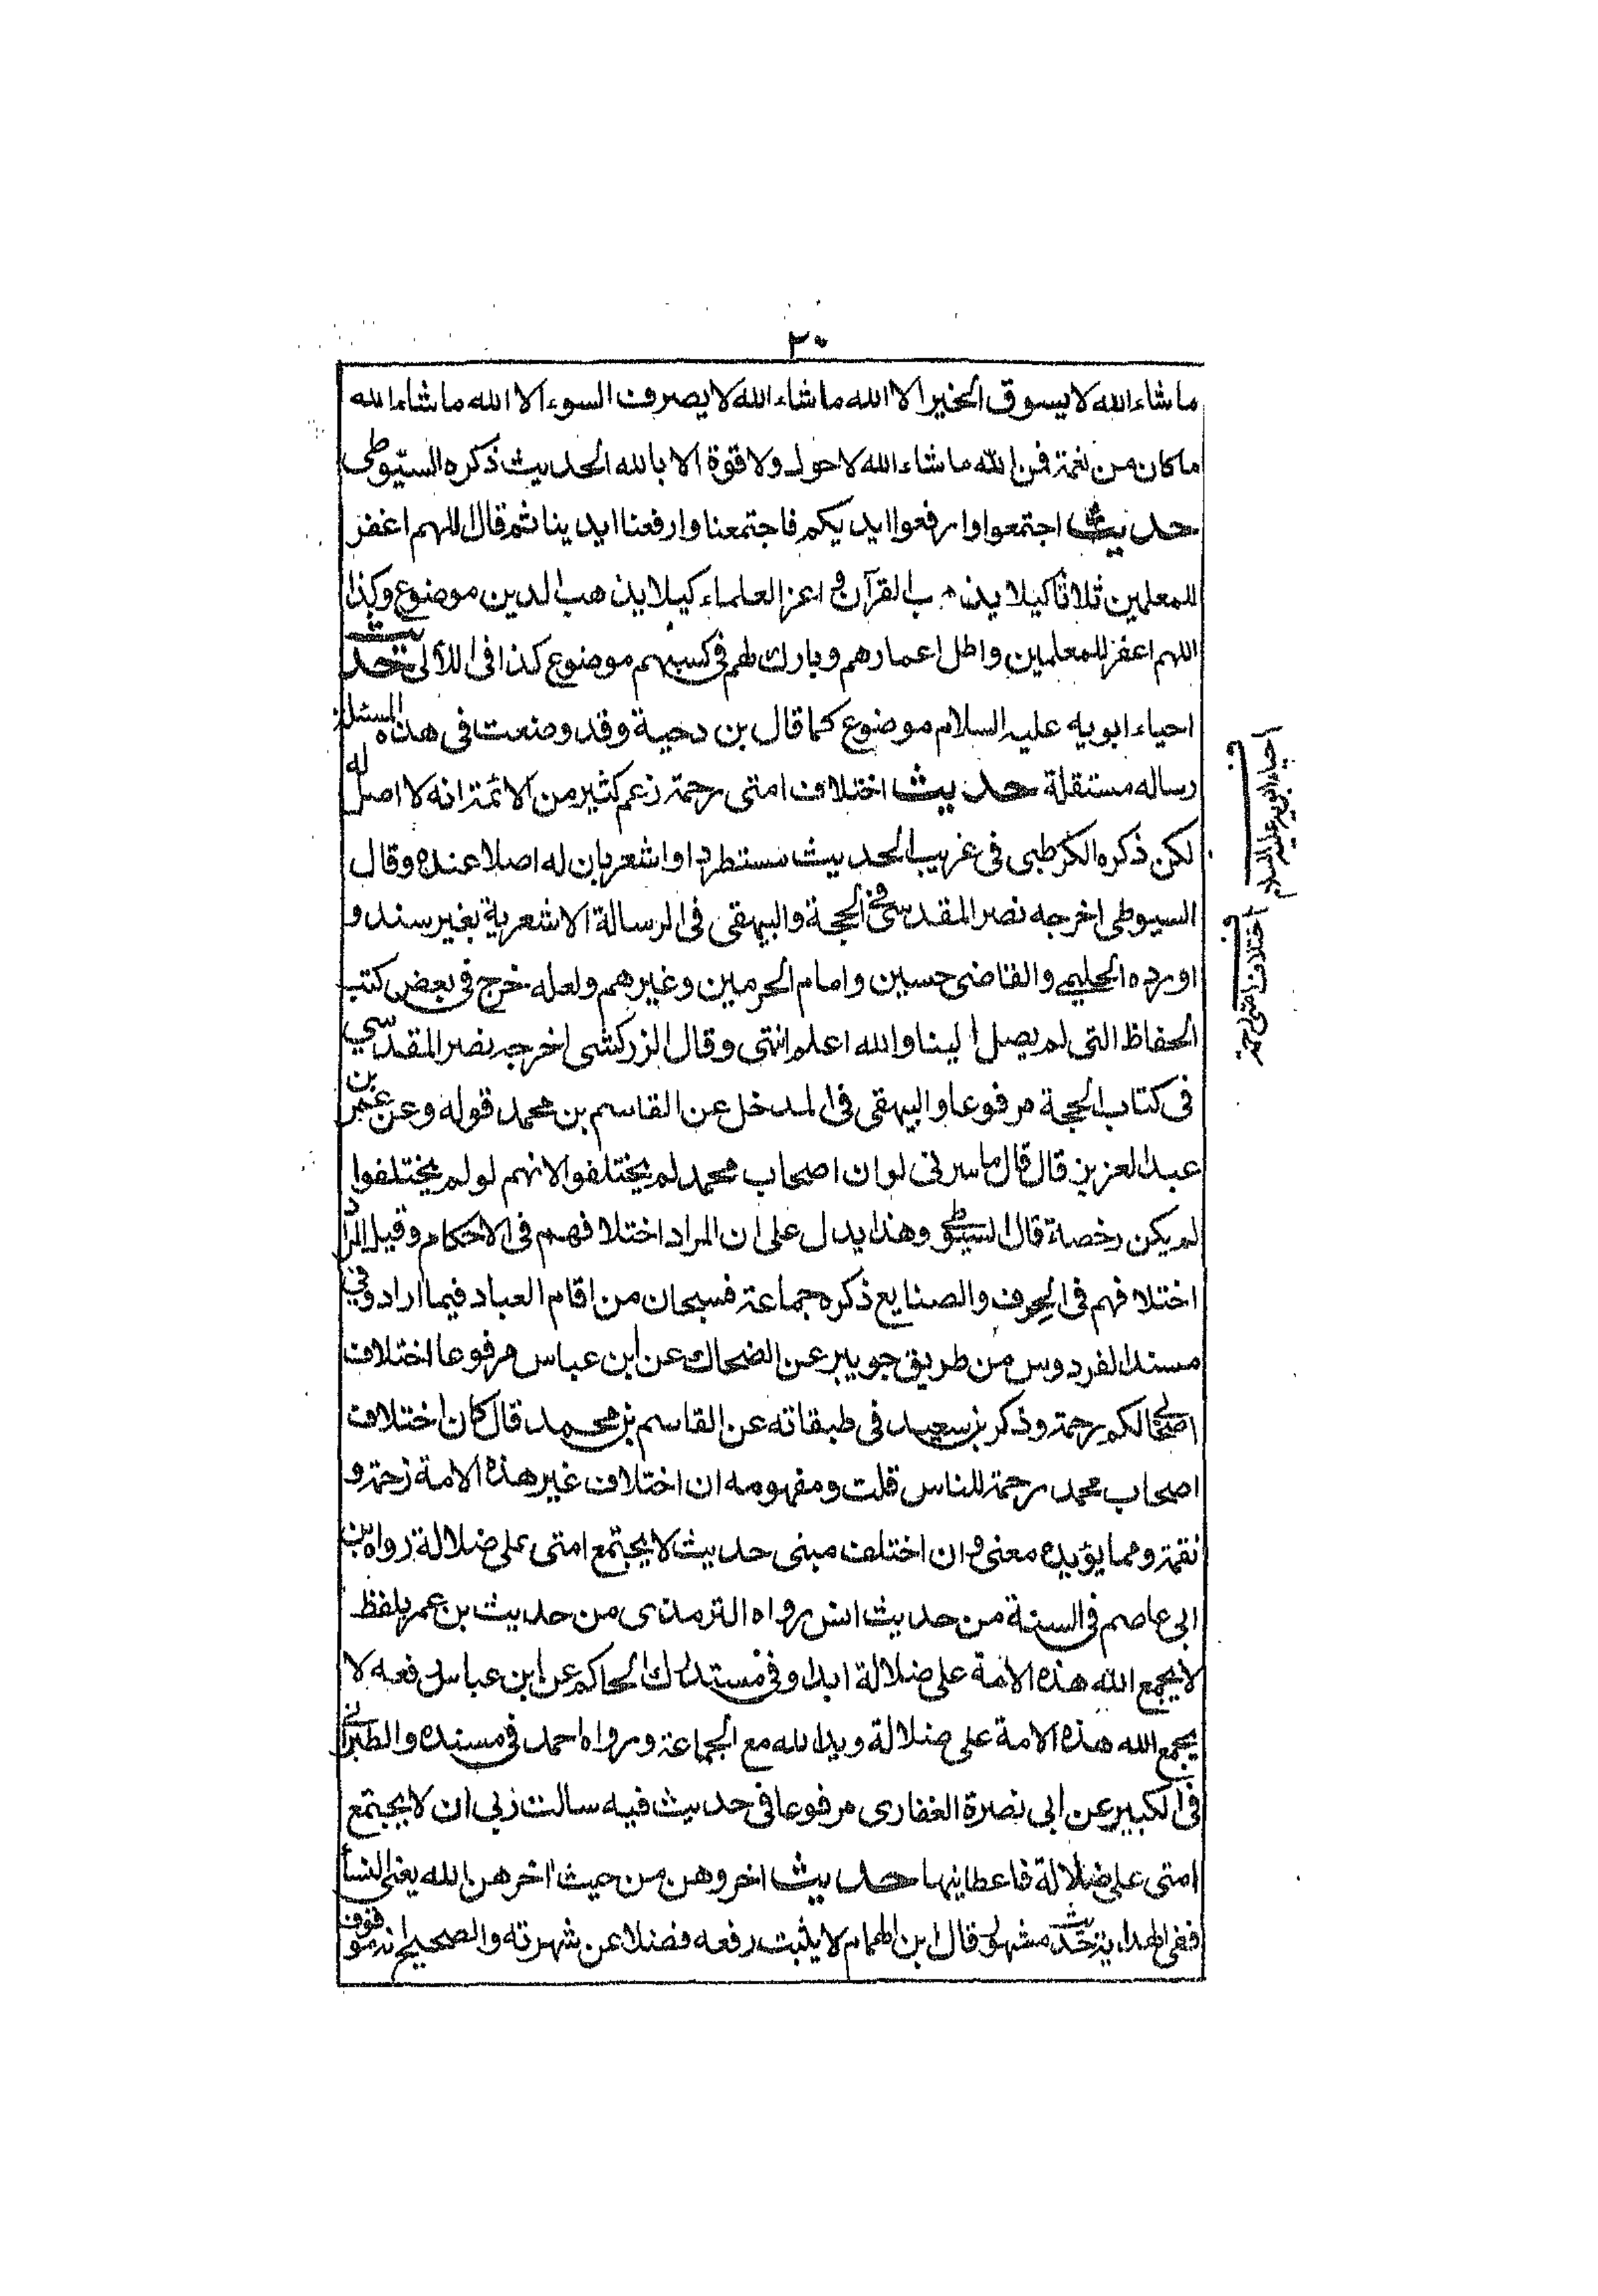 ٣٠
ما شاء الله لا يسوق الخير الا الله ما شاء الله لا يصرف السوء الا الله ما شاء الله
ما كان من نعمة فمن الله ما شاء الله لا حول ولا قوة الا بالله الحديث ذكره السيوطى
حديث اجتمعوا وارفعوا ايديكم فاجتمعنا وارفعنا ايدينا ثم قال اللهم اغفر
للمعلمين ثلاثا كيلا يذهب القرآن و اعز العلماء كيلا يذهب الدين موضوع وكذا
اللهم اغفر للمعلمين واطل اعمارهم وبارك لهم فى كسبهم موضوع كذا فى اللألى حديث
احياء ابويه عليه السلام موضوع كما قال بن دحية وقد وضعت فى هذه المسئلة
رساله مستقلة حديث اختلاف امتى رحمة زعم كثير من الائمة انه لا اصل له
لكن ذكره الكرطبى فى غريب الحديث مستطردا واشعر بان له اصلا عنده وقال
السيوطى اخرجه نصر المقدسى فى الحجة والبيهقى فى الرسالة الاشعرية بغير سند و
اورده الحليمى والقاضى حسين وامام الحرمين وغيرهم ولعله خرج فى بعض كتب
الحفاظ التى لم يصل الينا والله اعلم انتهى وقال الزركشى اخرجه نصر المقدسي
فى كتاب الحجة مرفوعا والبيهقى فى المدخل عن القاسم بن محمد قوله وعن عمر بن
عبد العزيز قال قال ما سرنى لو ان اصحاب محمد لم يختلفوا لانهم لو لم يختلفوا
لم يكن رخصة قال السيوطى وهذا يدل على ان المراد اختلافهم فى الاحكام وقيل المراد
اختلافهم فى الحرف والصنايع ذكره جماعة فسبحان من اقام العباد فيما اراد وفي
مسند الفردوس من طريق جويبر عن الضحاك عن ابن عباس مرفوعا اختلاف
اصحابى لكم رحمة وذكر بن سعيد فى طبقاته عن القاسم بن محمد قال كان اختلاف
اصحاب محمد رحمة للناس قلت ومفهومه ان اختلاف غير هذه الامة زحمة و
نقمة ومما يؤيده معنى و ان اختلف مبنى حديث لا يجتمع امتى على ضلالة رواه بن
ابى عاصم فى السنة من حديث انس رواه الترمذى من حديث بن عمر بلفظ
لا يجمع الله هذه الامة على ضلالة ابدا وفى مستدرك الحاكم عن ابن عباس رفعه لا
يجمع الله هذه الامة على ضلالة ويد الله مع الجماعة ورواه احمد فى مسنده والطبرانى
فى الكبير عن ابى نصرة الغفارى مرفوعا فى حديث فيه سالت ربى ان لا يجتمع
امتى على ضلالة فاعطانيها حديث اخروهن من حيث اخرهن الله يعنى النسأ
ففى الهداية حديث مشهور قال ابن الهمام لا يثبت رفعه فضلا عن شهرته والصحيح انه موقوف
ف احياء ابويه عليه السلام
ف اختلاف امتى رحمة